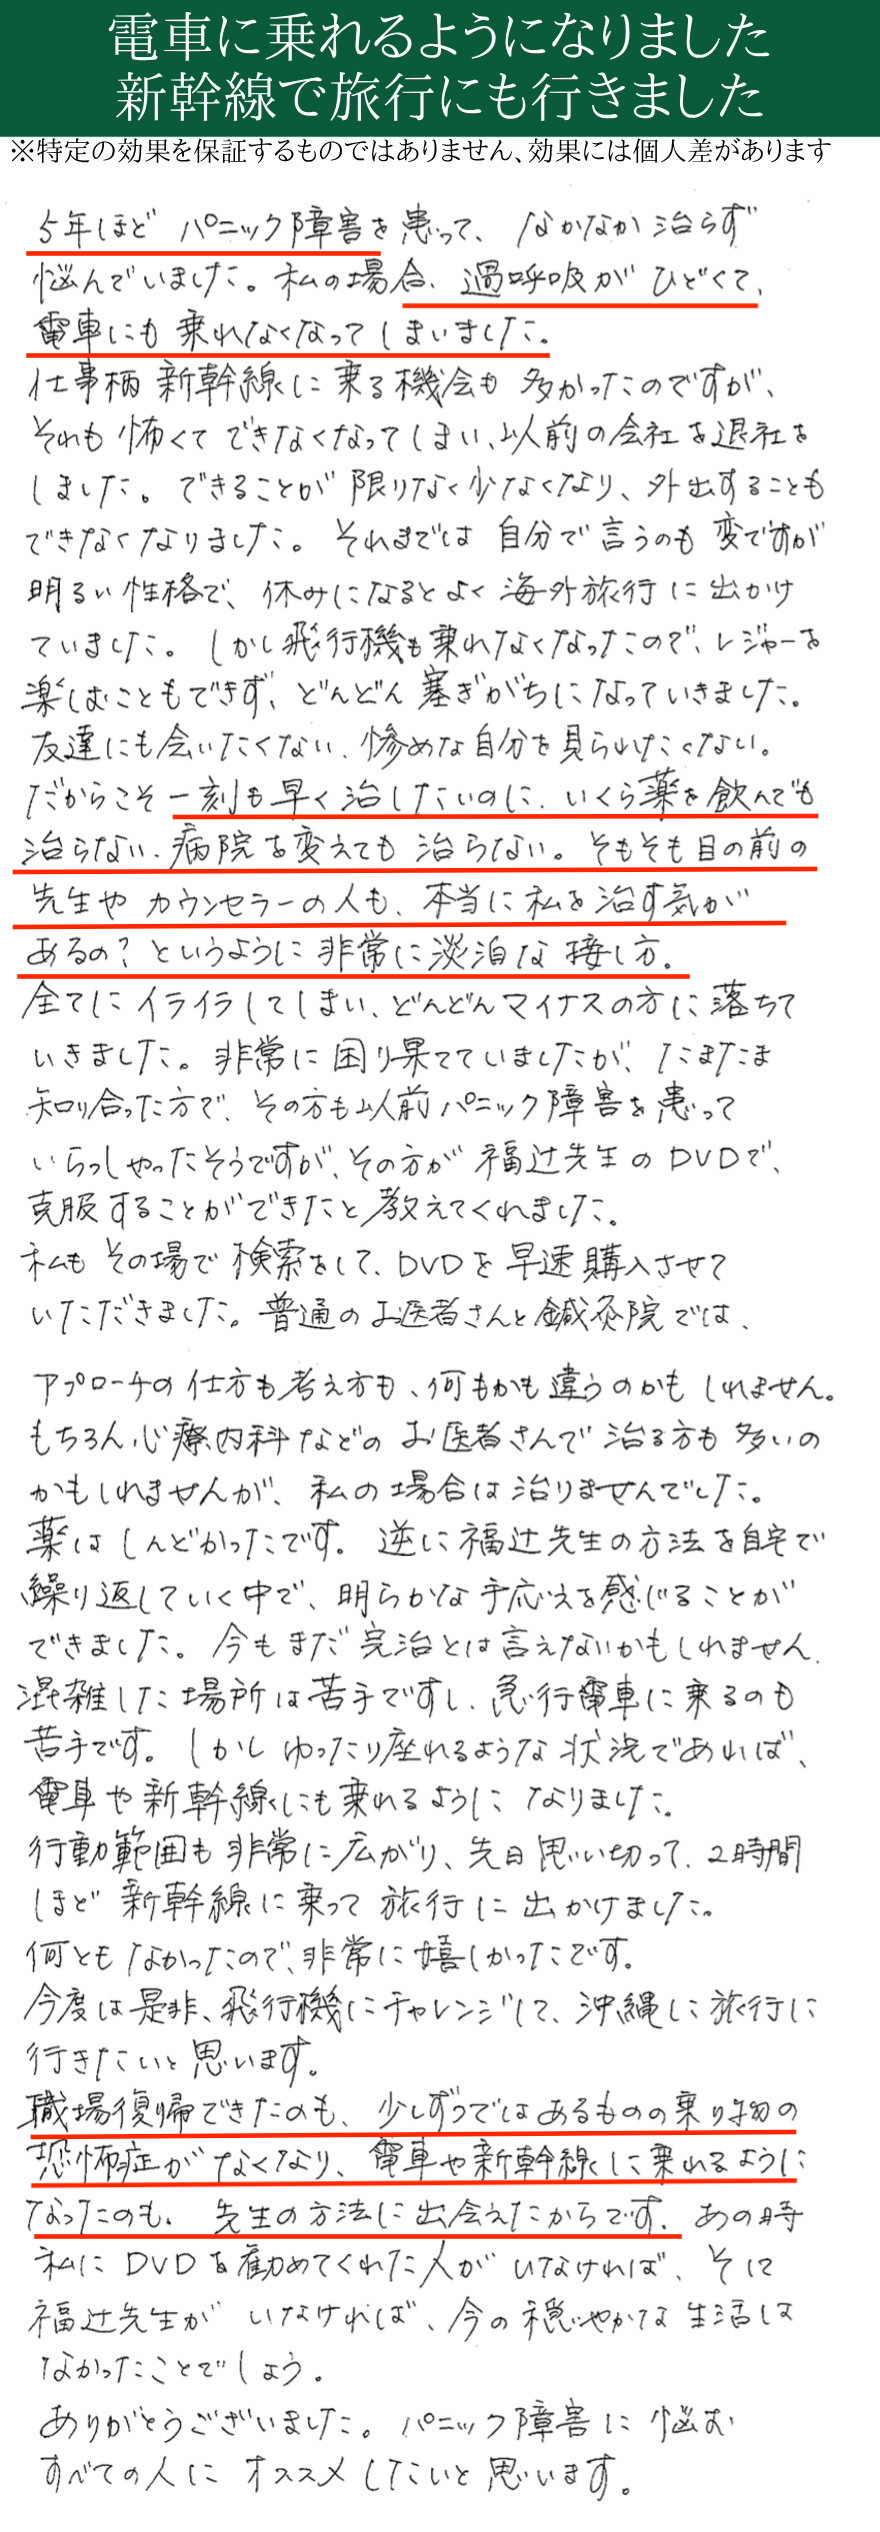 電車に乗れるようになりました
新幹線で旅行にも行きました
※特定の効果を保証するものではありません、効果には個人差があります
5年ほど パニック障害を患って、なかなか治らず
悩んでいました。私の場合、過呼吸がひどくて、
電車にも乗れなくなってしまいました。
仕事柄 新幹線に乗る機会も多かったのですが、
それも怖くてできなくなってしまい、以前の会社を退社を
しました。できることが限りなく少なくなり、外出することも
できなくなりました。それまでは自分で言うのも変ですが
明るい性格で、休みになるとよく海外旅行に出かけ
ていました。しかし飛行機も乗れなくなったので、レジャーを
楽しむこともできず、どんどん塞ぎがちになっていきました。
友達にも会いたくない、惨めな自分を見られたくない。
だからこそ一刻も早く治したいのに、いくら薬を飲んでも
治らない、病院を変えても治らない。そもそも目の前の
先生やカウンセラーの人も、本当に私を治す気が
あるの?というように非常に淡泊な接し方。
全てにイライラしてしまい、どんどんマイナスの方に落ちて
いきました。非常に困り果てていましたが、たまたま
知り合った方で、その方も以前パニック障害を患って
いらっしゃったそうですが、その方が福辻先生のDVDで、
克服することができたと教えてくれました。
私もその場で検索をして、DVDを早速購入させて
いただきました。普通のお医者さんと鍼灸院では、
アプローチの仕方も考え方も、何もかも違うのかもしれません。
もちろん、心療内科などのお医者さんで治る方も多いの
かもしれませんが、私の場合は治りませんでした。
薬はしんどかったです。逆に福辻先生の方法を自宅で
繰り返していく中で、明らかな手応えを感じることが
できました。今もまだ完治とは言えないかもしれません。
混雑した場所は苦手ですし、急行電車に乗るのも
苦手です。しかしゆったり座れるような状況であれば、
電車や新幹線にも乗れるようになりました。
行動範囲も非常に広がり、先日思い切って、2時間
ほど新幹線に乗って旅行に出かけました。
何ともなかったので、非常に嬉しかったです。
今度は是非、飛行機にチャレンジして、沖縄に旅行に
行きたいと思います。
職場復帰できたのも、少しずつではあるものの乗り物の
恐怖症がなくなり、電車や新幹線に乗れるように
なったのも、先生の方法に出会えたからです。あの時
私にDVDを勧めてくれた人がいなければ、そして
福辻先生がいなければ、今の穏やかな生活は
なかったことでしょう。
ありがとうございました。パニック障害に悩む
すべての人にオススメしたいと思います。